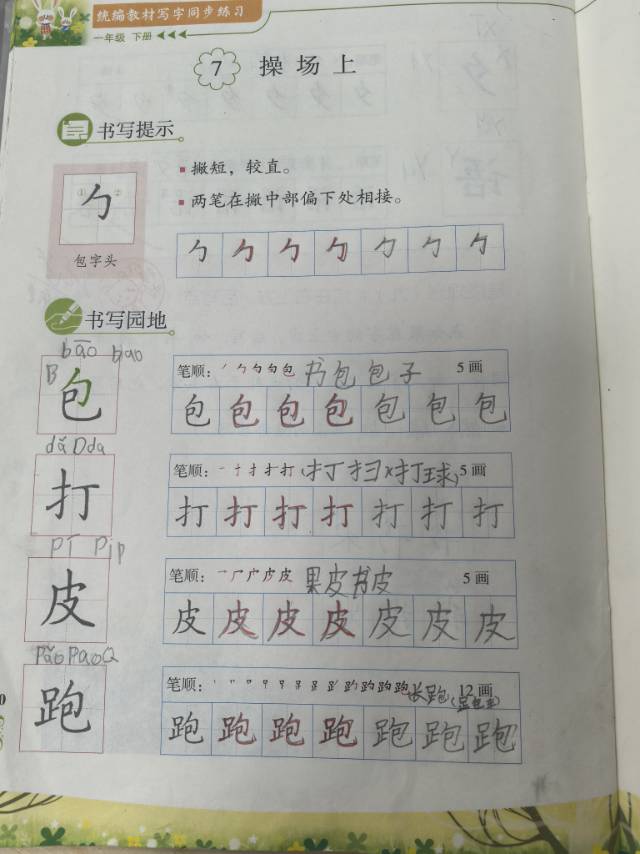 统编教材写字同步练习
一年级 下册
7 操场上
书写提示
撇短，较直。
两笔在撇中部偏下处相接。
① ②
勹
包字头
勹 勹 勹 勹 勹 勹 勹
书写园地
bāo bao
B
包
笔顺： 书包 包子 5画
包 包 包 包 包 包 包
dǎ Dda
打
笔顺： (打扫 打球) 5画
打 打 打 打 打 打 打
pí Pip
皮
笔顺： 果皮 书皮 5画
皮 皮 皮 皮 皮 皮 皮
pǎo
跑
笔顺： 长跑 12画
跑 跑 跑 跑 跑 跑 跑